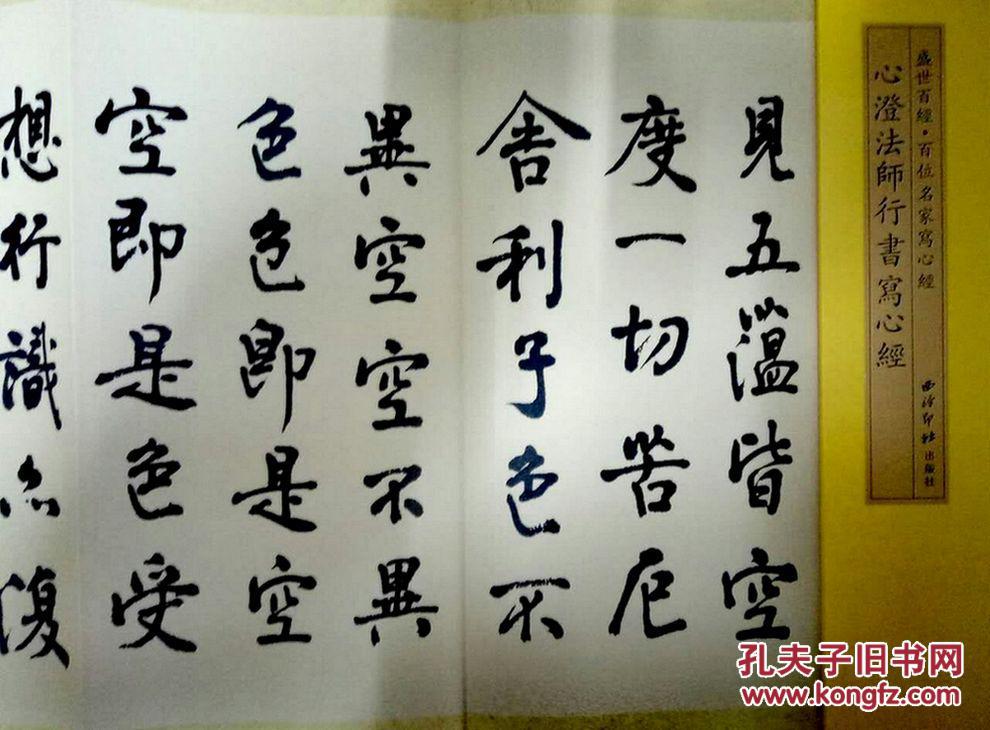 盛世百經·百位名家寫心經
心澄法師行書寫心經
西泠印社出版社
見五蕰皆空
度一切苦厄
舍利子色不
異空空不異
色色即是空
空即是色受
想行識亦復
孔夫子旧书网
www.kongfz.com